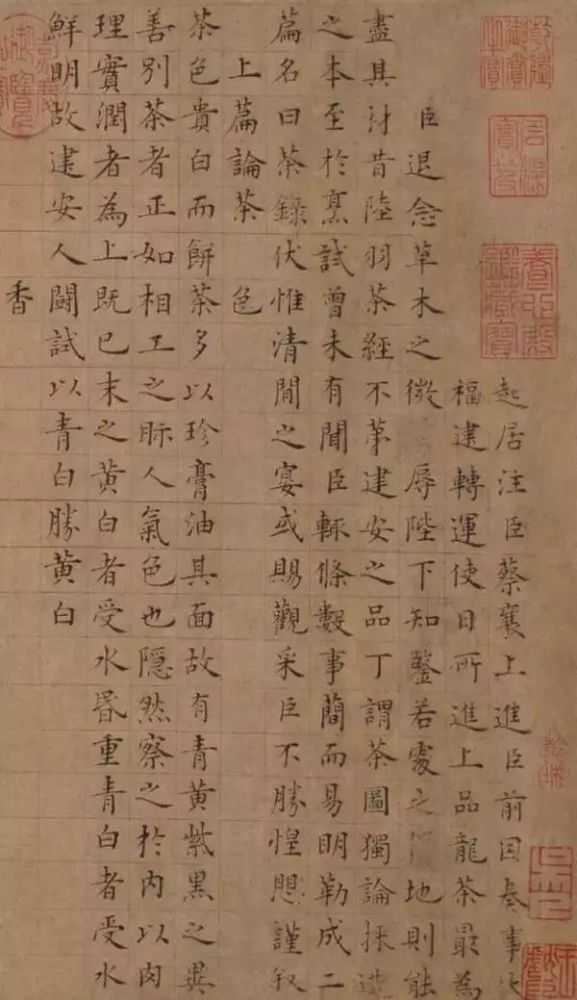 石渠寶笈
養心殿鑑藏寶
起居注臣蔡襄上進臣前因奏事
福建轉運使日所進上品龍茶最為
臣退念草木之微辱陛下知鑒若處之得地則能
盡其材昔陸羽茶經不第建安之品丁謂茶圖獨論採造
之本至於烹試曾未有聞臣輒條數事簡而易明勒成二
篇名曰茶錄伏惟清閒之宴或賜觀采臣不勝惶懼謹叙
上篇論茶
色
茶色貴白而餅茶多以珍膏油其面故有青黃紫黑之異
善別茶者正如相工之眎人氣色也隱然察之於內以肉
理實潤者為上既已末之黃白者受水昬重青白者受水
鮮明故建安人鬪試以青白勝黃白
香